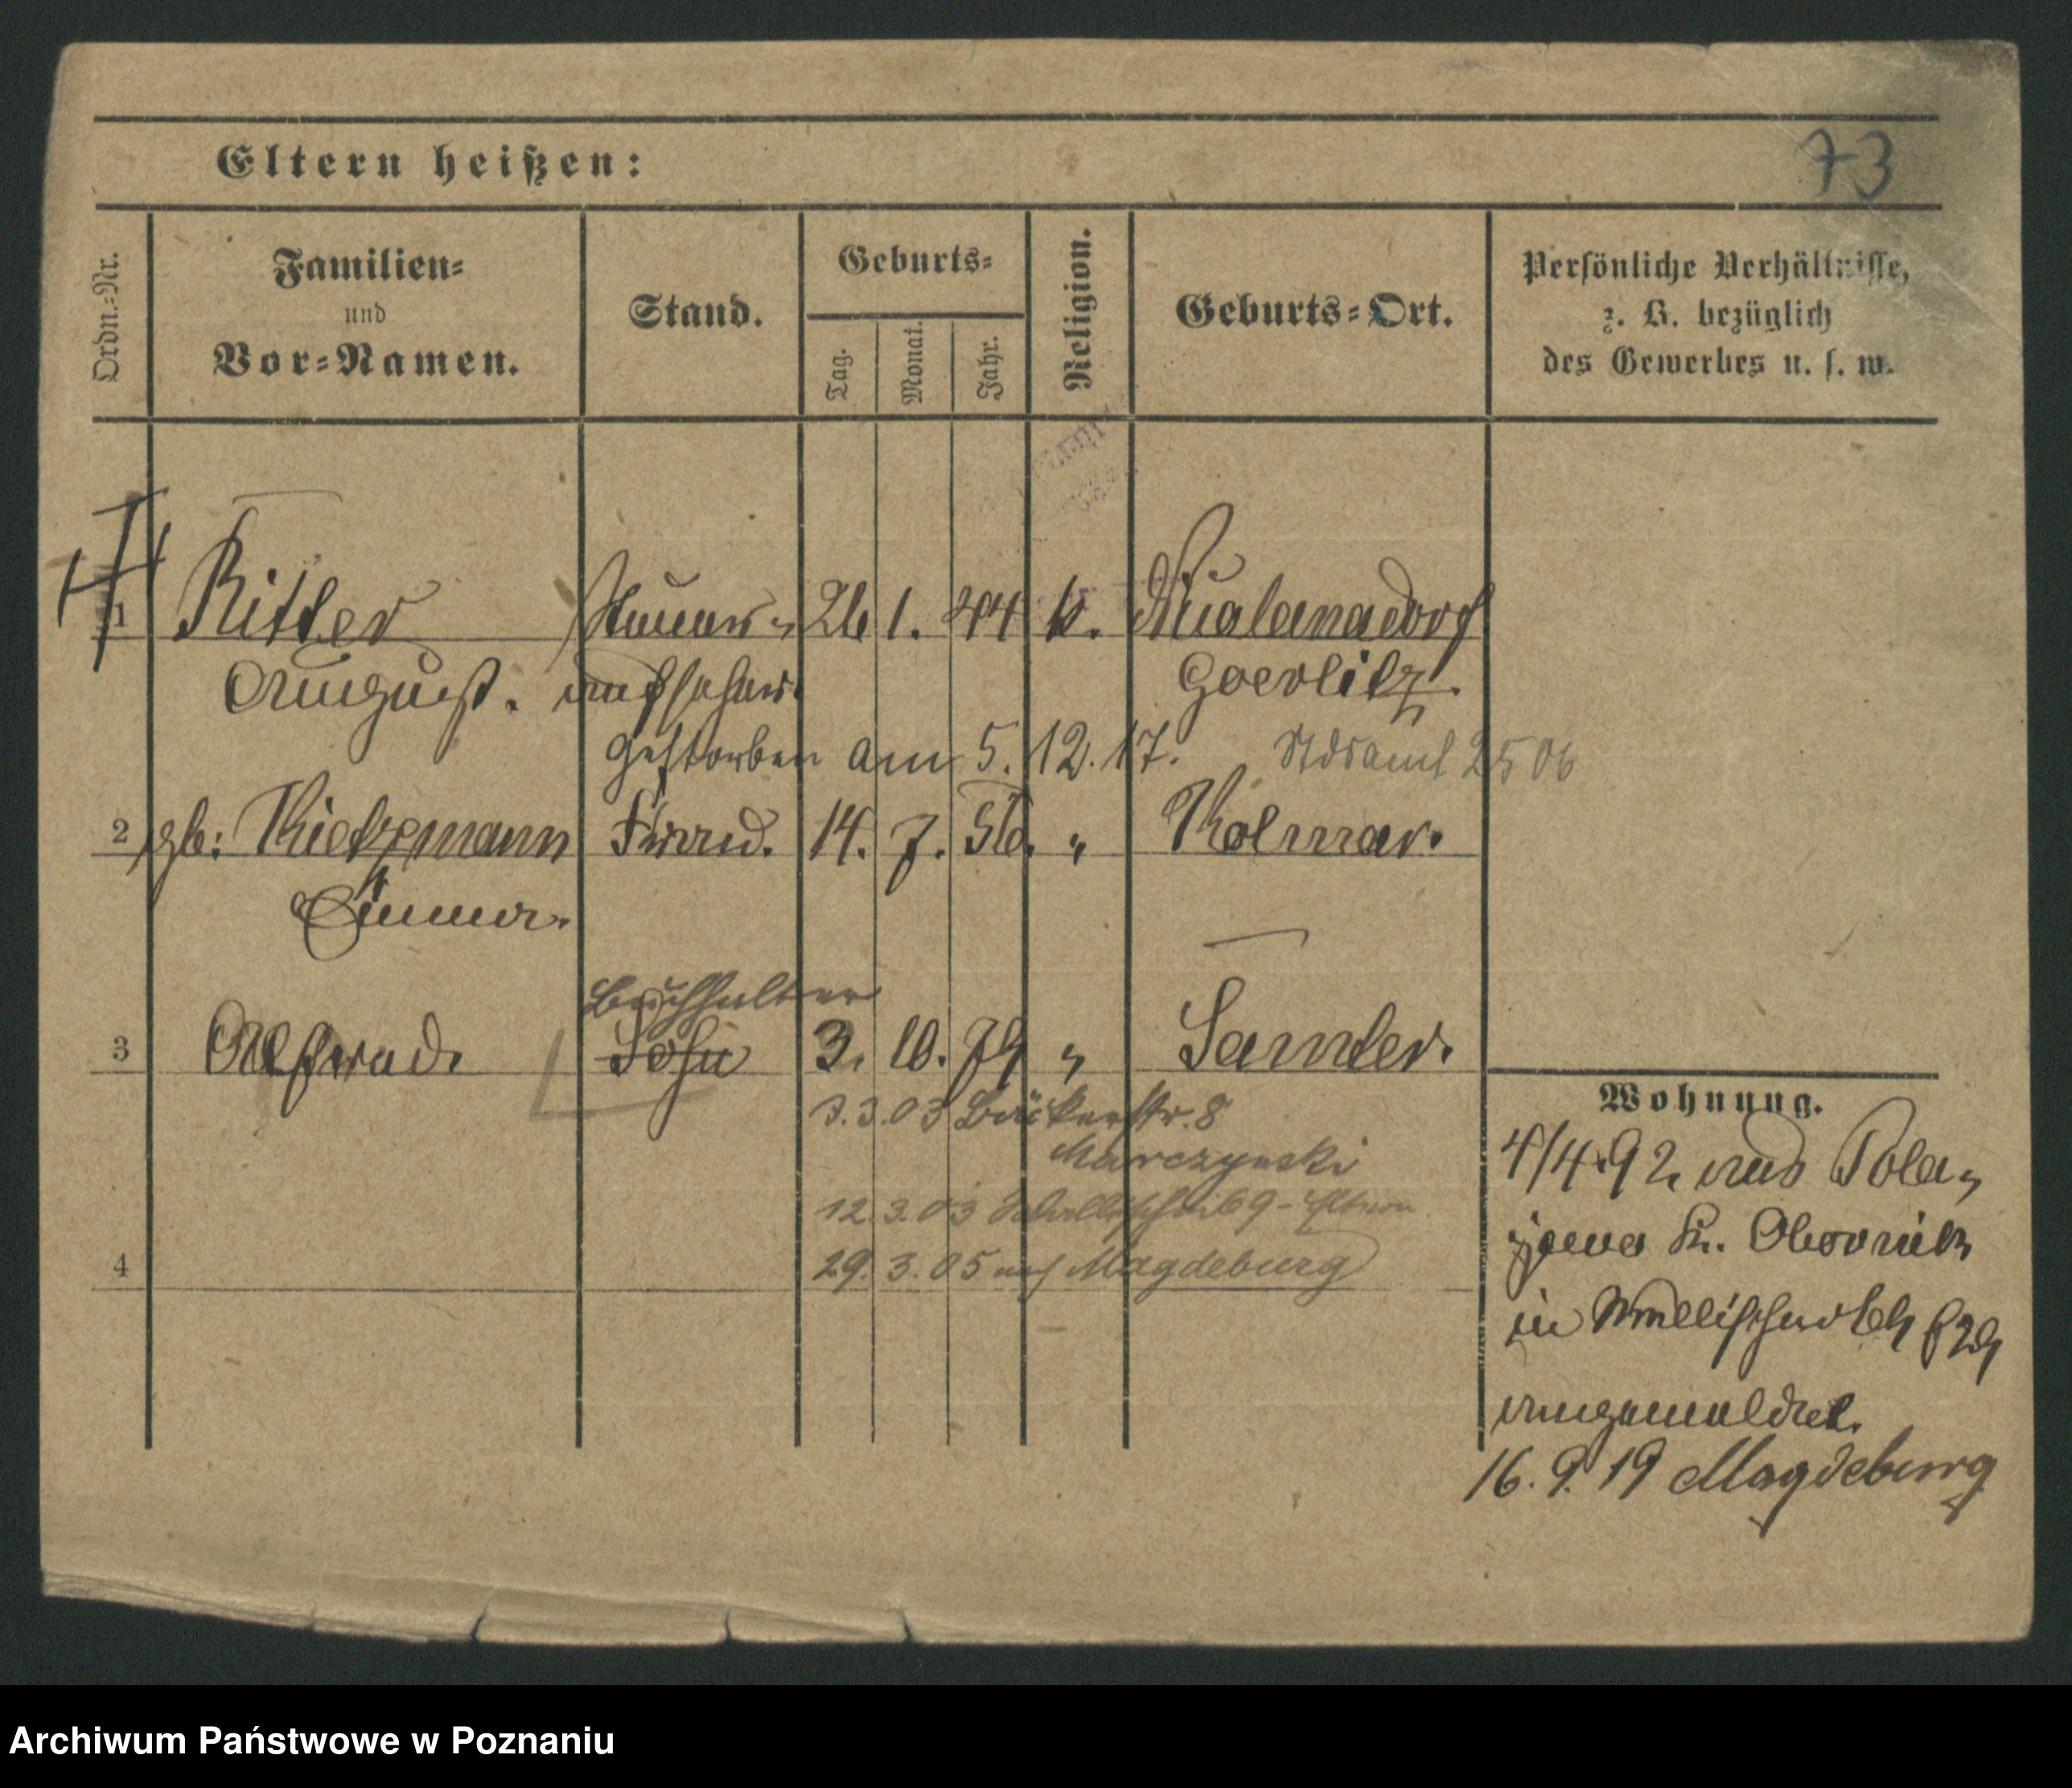 73
Eltern heißen:
Ordn.-Nr.
Familien-
und
Vor-Namen.
Stand.
Geburts-
Tag.
Monat.
Jahr.
Religion.
Geburts-Ort.
Persönliche Verhältnisse,
z. B. bezüglich
des Gewerbes u. s. w.
1 Ritter Steuer- 26 1. 44 k.
August. aufseher. Goerlitz.
gestorben am 5. 12. 17. Stdsamt 2506
2 gb: Kietzmann Frau. 14. 7. 56. " Kolmar.
Emma.
Buchhalter
3 Alfred. Sohn 3. 10. 79 " Samter.
3. 3. 03 Bäckerstr. 8
Marczynski
12. 3. 03 69 - Eltern
4 29. 3. 05 nach Magdeburg
Wohnung.
4/4. 92 aus Pola-
jewo Kr. Obornik
in Wallischei
angemeldet.
16. 9. 19 Magdeburg
Archiwum Państwowe w Poznaniu